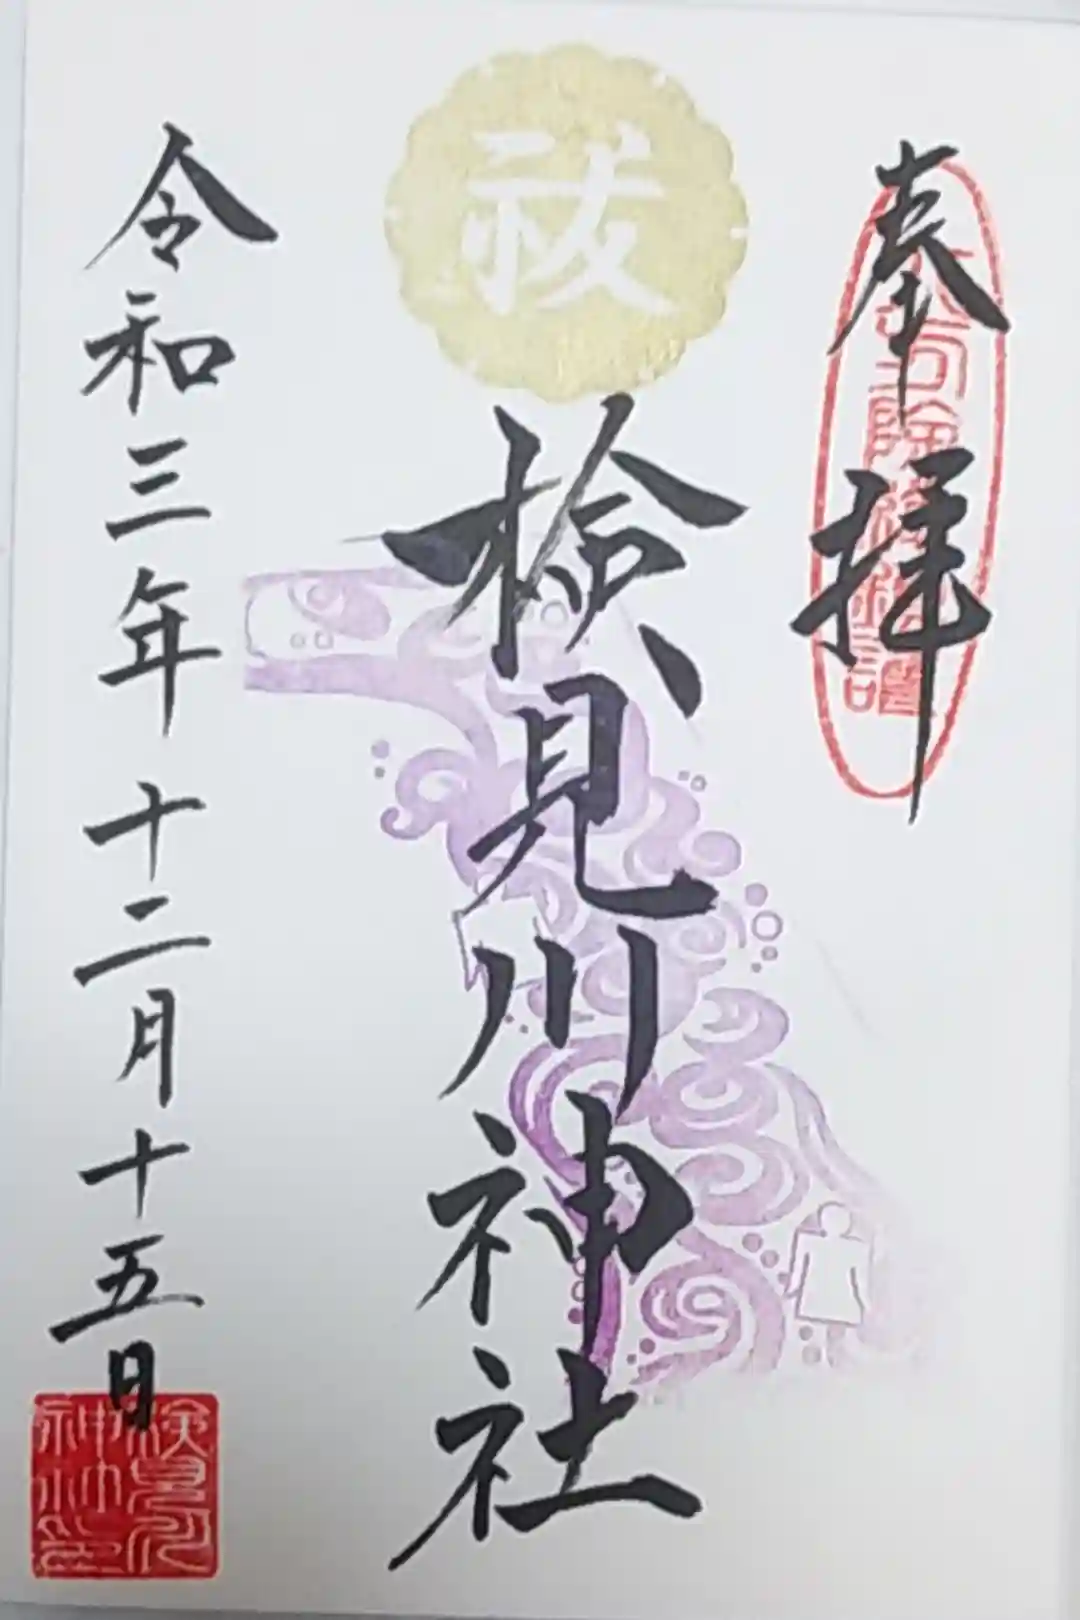 奉拝
祓
検見川神社
令和三年十二月十五日